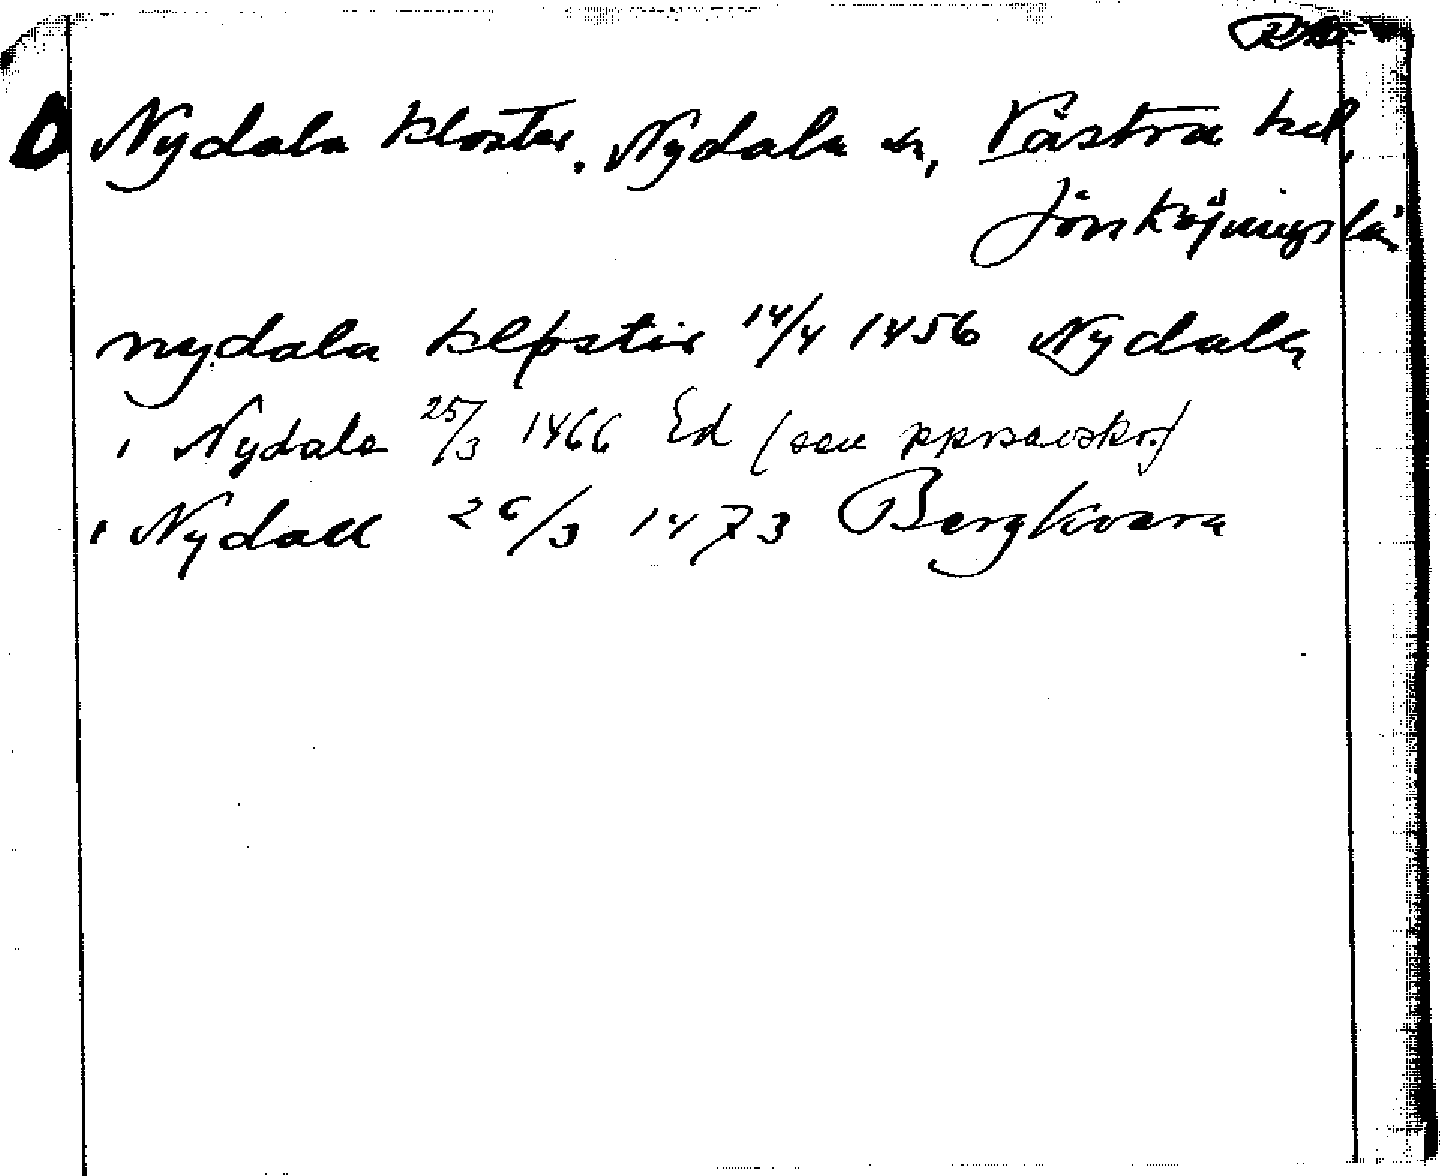 Nydala kloster. Nydala sn, Västra hd,
Jönköpings län
nydala klostir 14/4 1456 Nydala
i Nydala 25/3 1466 Ed (sen pprsavskr.)
i Nydall 26/3 1473 Bergkvara